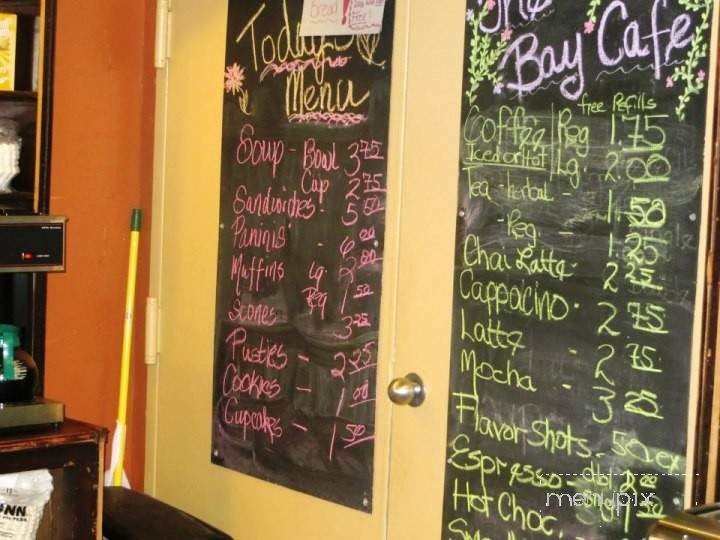 Bread
Today's
Menu
Soup - Bowl 3 75
Cup 2 75
Sandwiches - 5 50
Paninis - 6 00
Muffins Lg. 2 00
Reg 1 50
Scones 3 25
Pusties - 2 25
Cookies - 1 00
Cupcakes - 1 50
The
Bay Cafe
free Refills
Coffee Reg 1.75
Iced or Hot Lg. 2.00
Tea - herbal - 1 50
- Reg. - 1 25
Chai Latte - 2 75
Cappocino - 2 75
Latte - 2 75
Mocha - 3 25
Flavor Shots - 50
Espresso - dbl 2
Hot Choc. 1 50
menupix